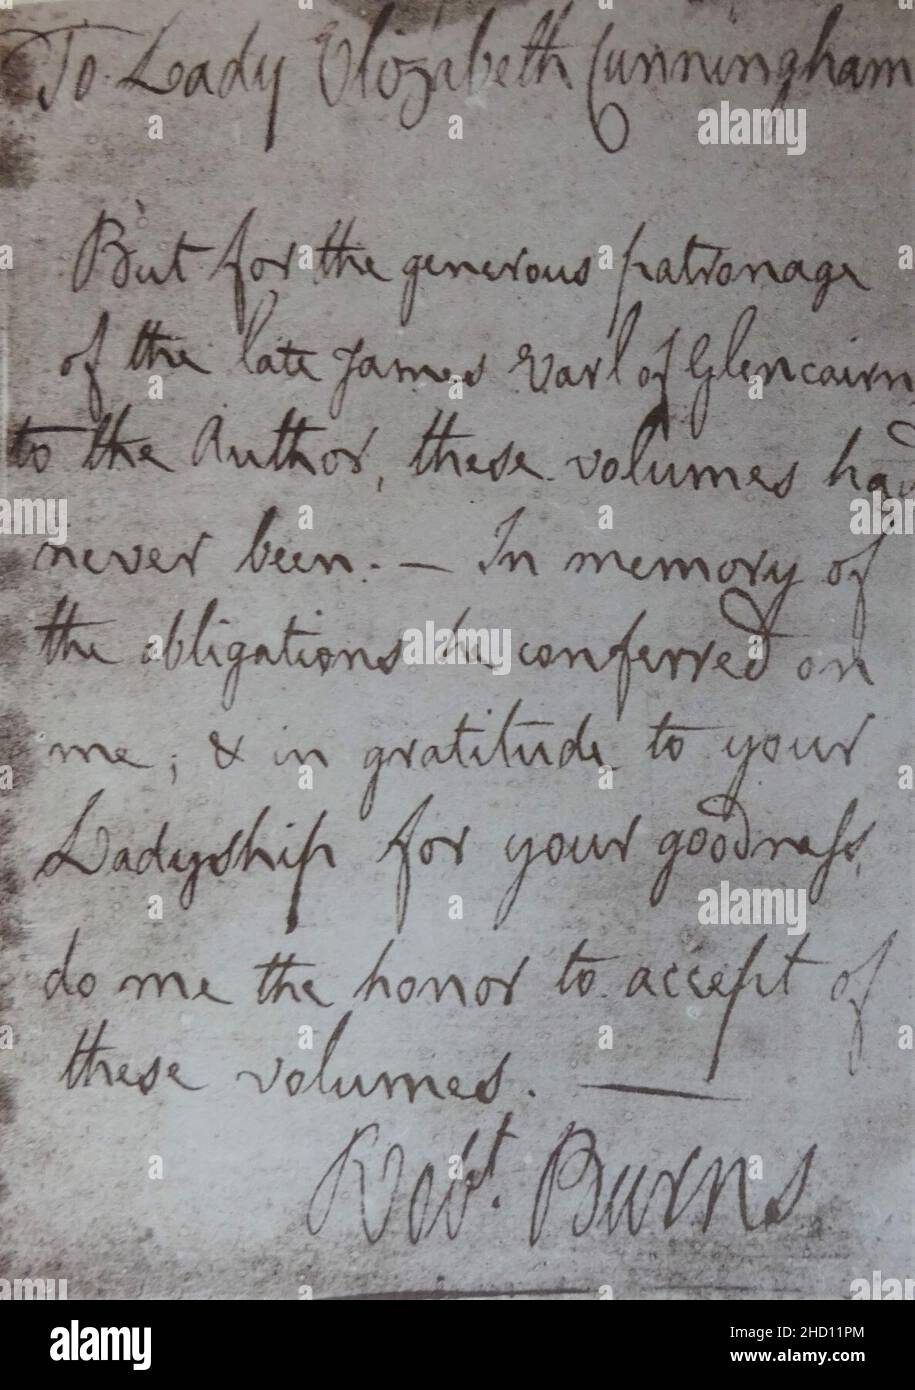 To Lady Elizabeth Cunningham
But for the generous patronage
of the late James Earl of Glencairn
to the Author, these volumes had
never been. — In memory of
the obligations he conferred on
me; & in gratitude to your
Ladyship for your goodness,
do me the honor to accept of
these volumes. —
Robt. Burns
alamy
Image ID: 2HD11PM
www.alamy.com